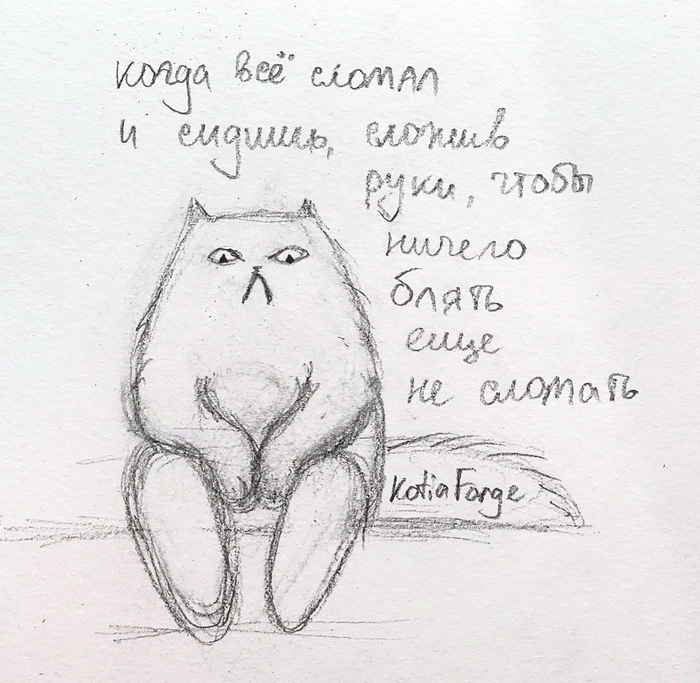 когда всё сломал
и сидишь, сложив
руки, чтобы
ничего
блять
еще
не сломать
KotiaForge